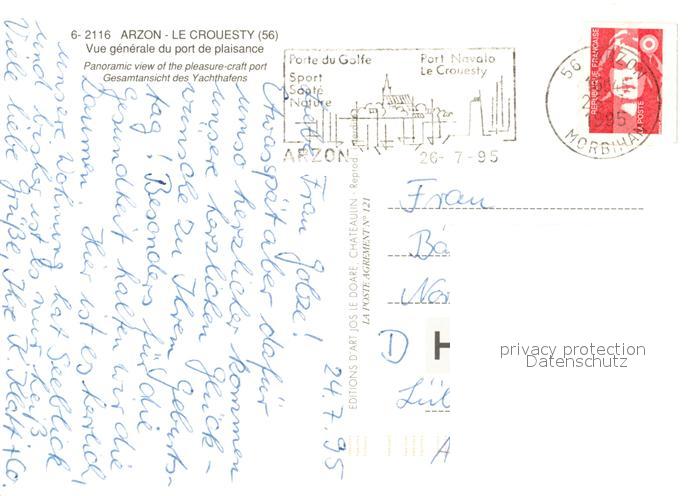 6- 2116 ARZON - LE CROUESTY (56)
Vue générale du port de plaisance
Panoramic view of the pleasure-craft port
Gesamtansicht des Yachthafens
Porte du Golfe
Sport
Santé
Nature
Port Navalo
Le Crouesty
ARZON 26-7-95
56 ARZON
1995
MORBIHAN
REPUBLIQUE FRANÇAISE
LA POSTE
24.7.95
Frau
etwas spät aber dafür
umso herzlicher kommen
unsere herzlichen Glück-
wünsche zu Ihrem Geburts-
tag! Besonders für die
Gesundheit halten wir die
Daumen. Hier ist es herrlich,
unsere Wohnung hat Seeblick
und
Viele liebe Grüße, Ihre
EDITIONS D'ART JOS LE DOARE, CHATEAULIN - Reprod. interdite
LA POSTE AGREMENT N° 121
Frau
Bä
No
D H
Lüb
A
privacy protection
Datenschutz